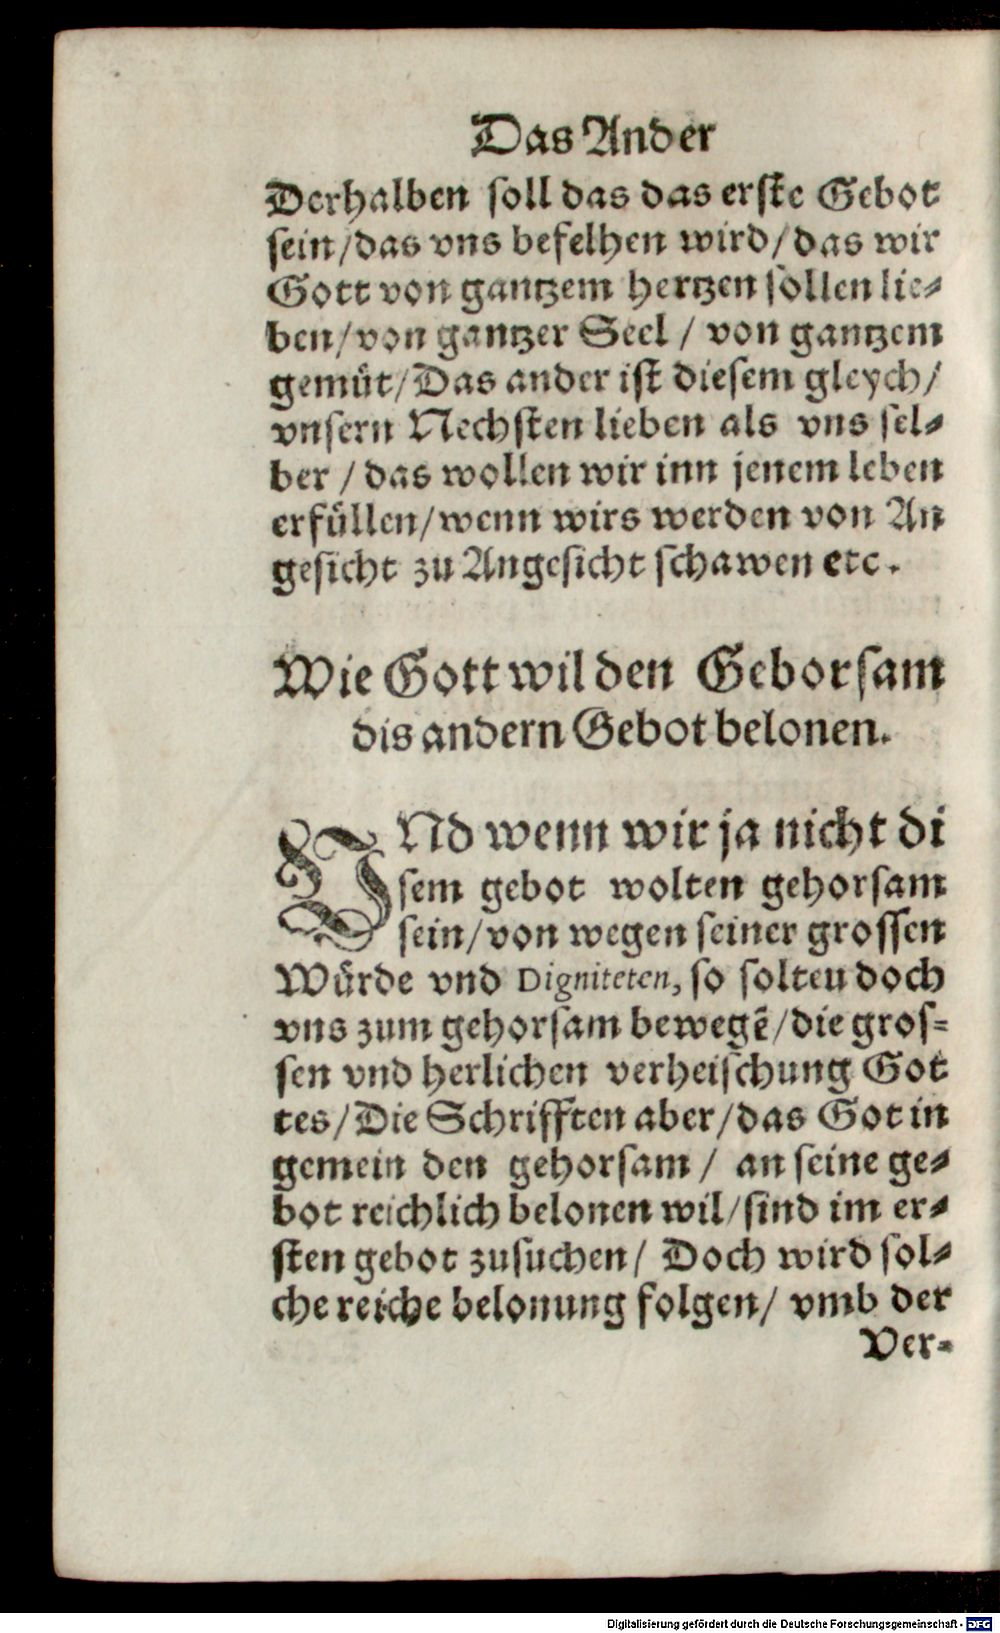 Das Ander
Derhalben soll das das erste Gebot
sein/das vns befelhen wird/das wir
Gott von gantzem hertzen sollen lie-
ben/von gantzer Seel / von gantzem
gemüt/Das ander ist diesem gleych/
vnsern Nechsten lieben als vns sel-
ber / das wollen wir inn jenem leben
erfüllen/wenn wirs werden von An
gesicht zu Angesicht schawen etc.
Wie Gott wil den Geborsam
dis andern Gebot belonen.
VNd wenn wir ja nicht di
sem gebot wolten gehorsam
sein/von wegen seiner grossen
Würde vnd Digniteten, so solteu doch
vns zum gehorsam bewegẽ/die gros-
sen vnd herlichen verheischung Got
tes/Die Schrifften aber/das Got in
gemein den gehorsam / an seine ge-
bot reichlich belonen wil/sind im er-
sten gebot zusuchen/ Doch wird sol-
che reiche belonung folgen/ vmb der
Ver-
Digitalisierung gefördert durch die Deutsche Forschungsgemeinschaft - DFG